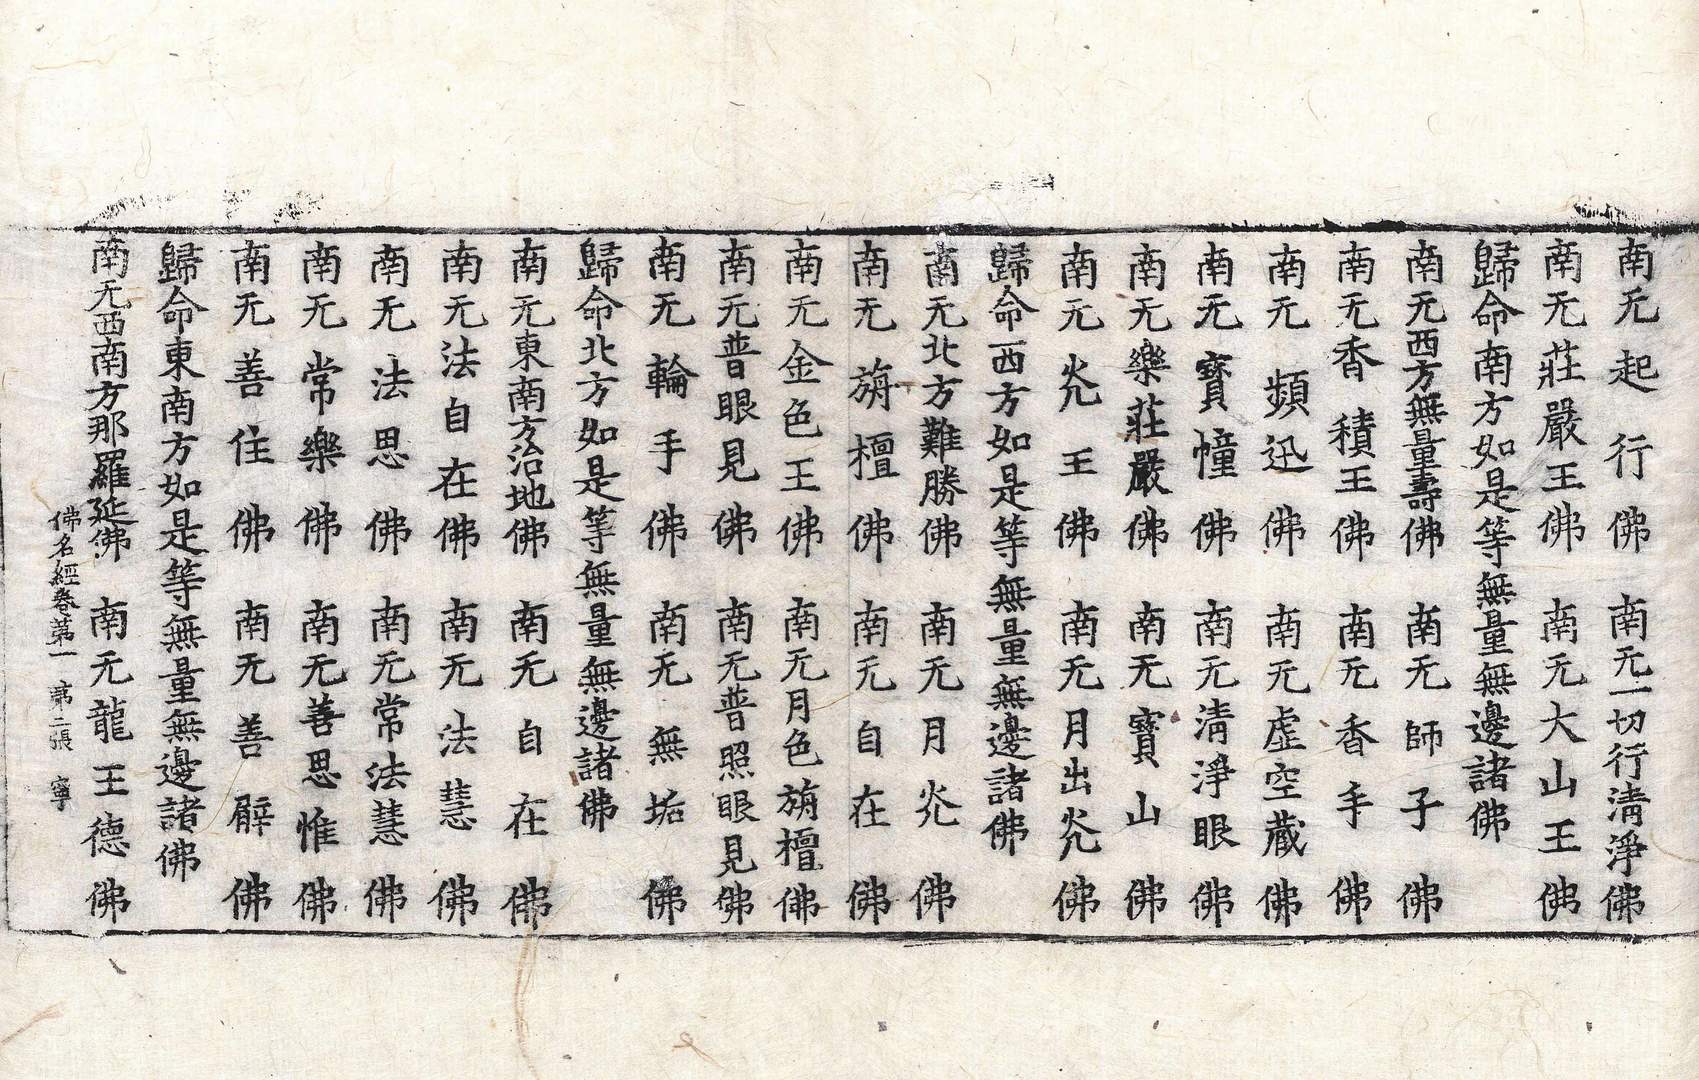 南无起行佛 南无一切行清淨佛
南无莊嚴王佛 南无大山王佛
歸命南方如是等無量無邊諸佛
南无西方無量壽佛 南无師子佛
南无香積王佛 南无香手佛
南无頻迅佛 南无虛空藏佛
南无寶幢佛 南无清淨眼佛
南无樂莊嚴佛 南无寶山佛
南无光王佛 南无月出光佛
歸命西方如是等無量無邊諸佛
南无北方難勝佛 南无月光佛
南无旃檀佛 南无自在佛
南无金色王佛 南无月色旃檀佛
南无普眼見佛 南无普照眼見佛
南无輪手佛 南无無垢佛
歸命北方如是等無量無邊諸佛
南无東南方治地佛 南无自在佛
南无法自在佛 南无法慧佛
南无法思佛 南无常法慧佛
南无常樂佛 南无善思惟佛
南无善住佛 南无善臂佛
歸命東南方如是等無量無邊諸佛
南无西南方那羅延佛 南无龍王德佛
佛名經卷第一 第二張 寧